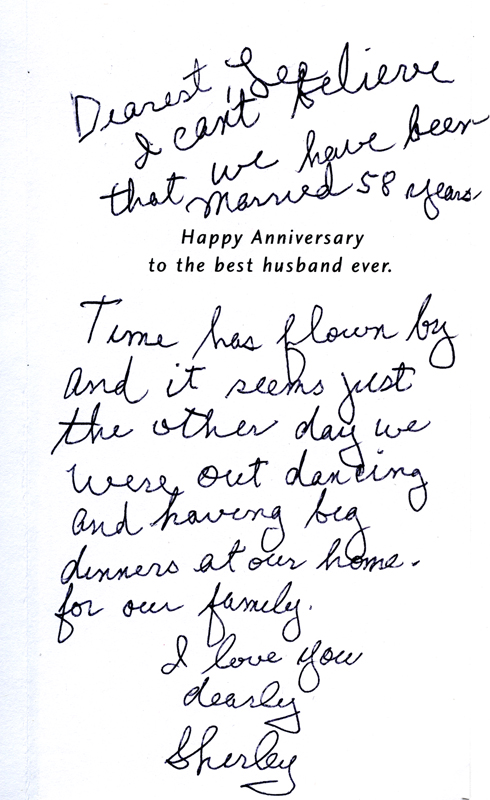 Dearest Lee
I can't believe
that we have been
married 58 years
Happy Anniversary
to the best husband ever.
Time has flown by
and it seems just
the other day we
were out dancing
and having big
dinners at our home.
for our family.
I love you
dearly
Shirley